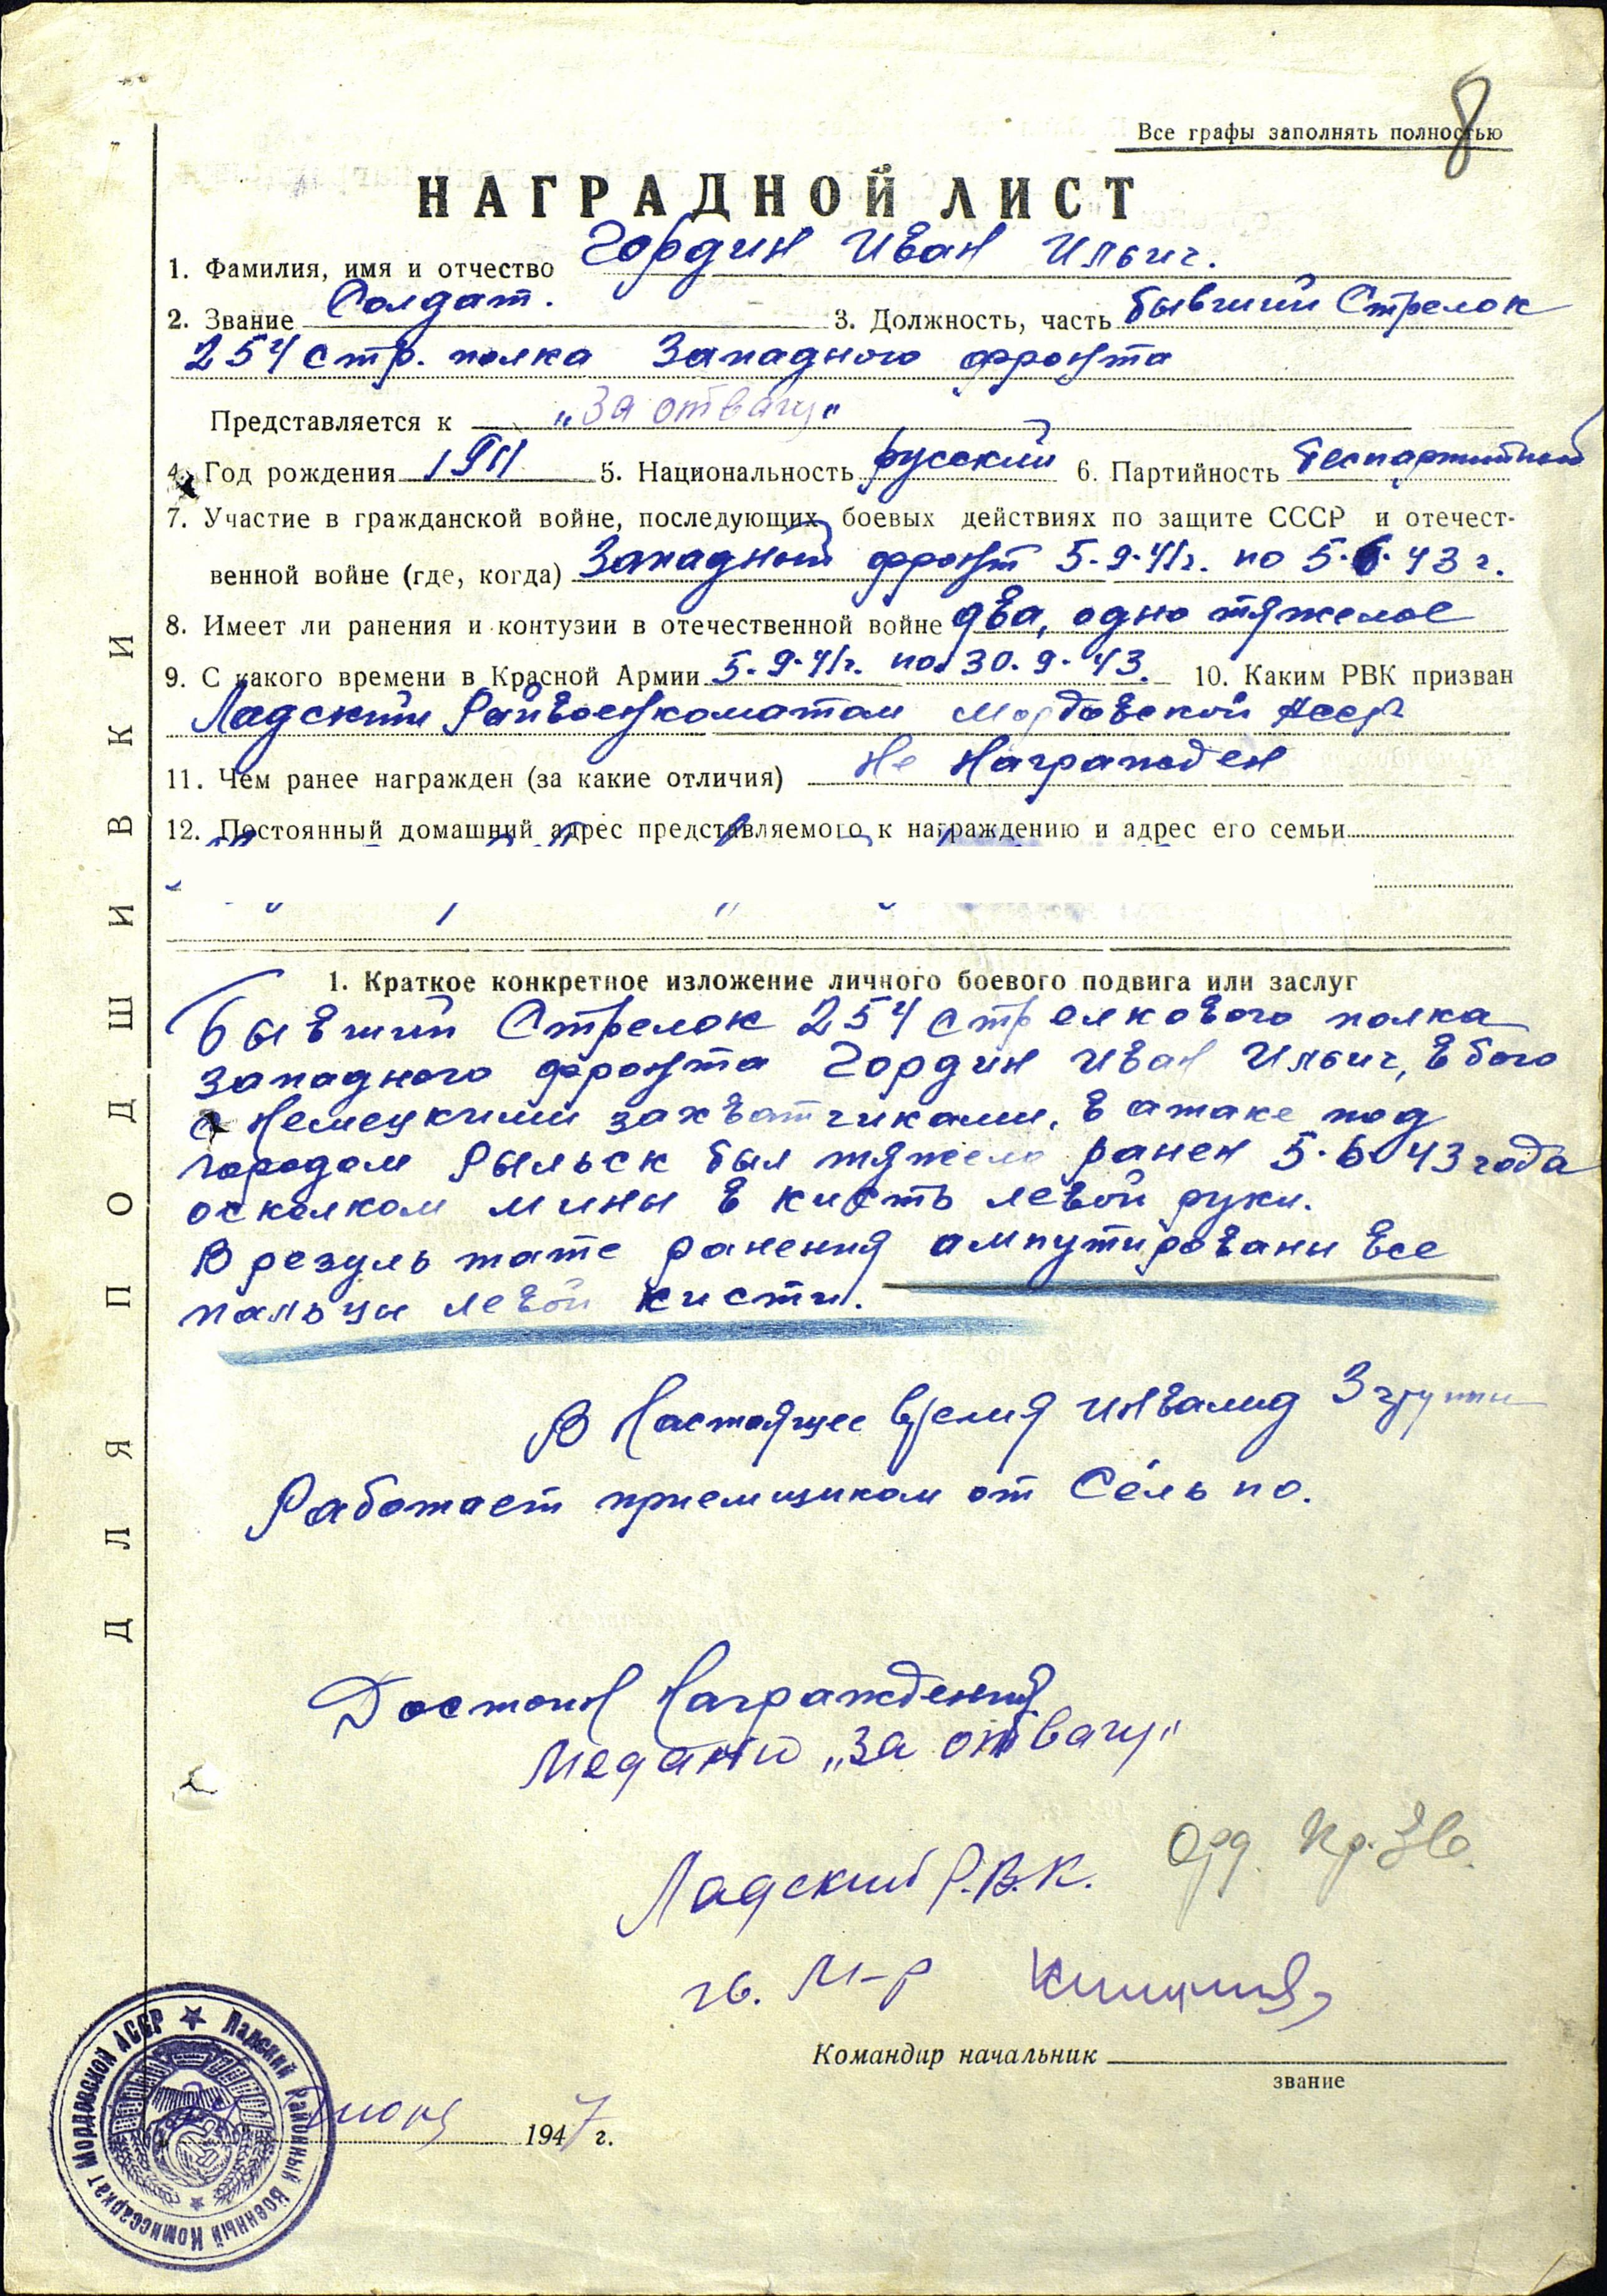 8
Все графы заполнять полностью
НАГРАДНОЙ ЛИСТ
1. Фамилия, имя и отчество Гордин Иван Ильич.
2. Звание Солдат. 3. Должность, часть бывший Стрелок
254 стр. полка Западного фронта
Представляется к „За отвагу“
4. Год рождения 1911 5. Национальность русский 6. Партийность беспартийный
7. Участие в гражданской войне, последующих боевых действиях по защите СССР и отечест-
венной войне (где, когда) Западный фронт 5.9.41г. по 5.6.43 г.
8. Имеет ли ранения и контузии в отечественной войне два, одно тяжелое
9. С какого времени в Красной Армии 5.9.41г. по 30.9.43. 10. Каким РВК призван
Ладский Райвоенкоматом Мордовской Асср
11. Чем ранее награжден (за какие отличия) Не Награжден
12. Постоянный домашний адрес представляемого к награждению и адрес его семьи
1. Краткое конкретное изложение личного боевого подвига или заслуг
Бывший Стрелок 254 стрелкового полка
западного фронта Гордин Иван Ильич, в бою
с Немецкими захватчиками, в атаке под
городом Рыльск был тяжело ранен 5.6.43 года
осколком мины в кисть левой руки.
В результате ранения ампутированы все
пальцы левой кисти.
В Настоящее время инвалид 3 группы
Работает приемщиком от Сельпо.
Достоин Награждения
Медалью „За отвагу“
Орд. Кр. Зв.
Ладский Р.В.К.
гв. М-р
Командир начальник
звание
июня 1947 г.
Ладский Районный Военный Комиссариат Мордовской АССР
ДЛЯ ПОДШИВКИ